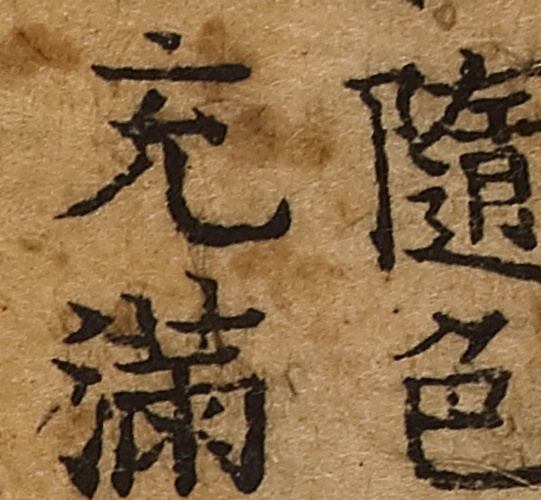 隨色
充滿